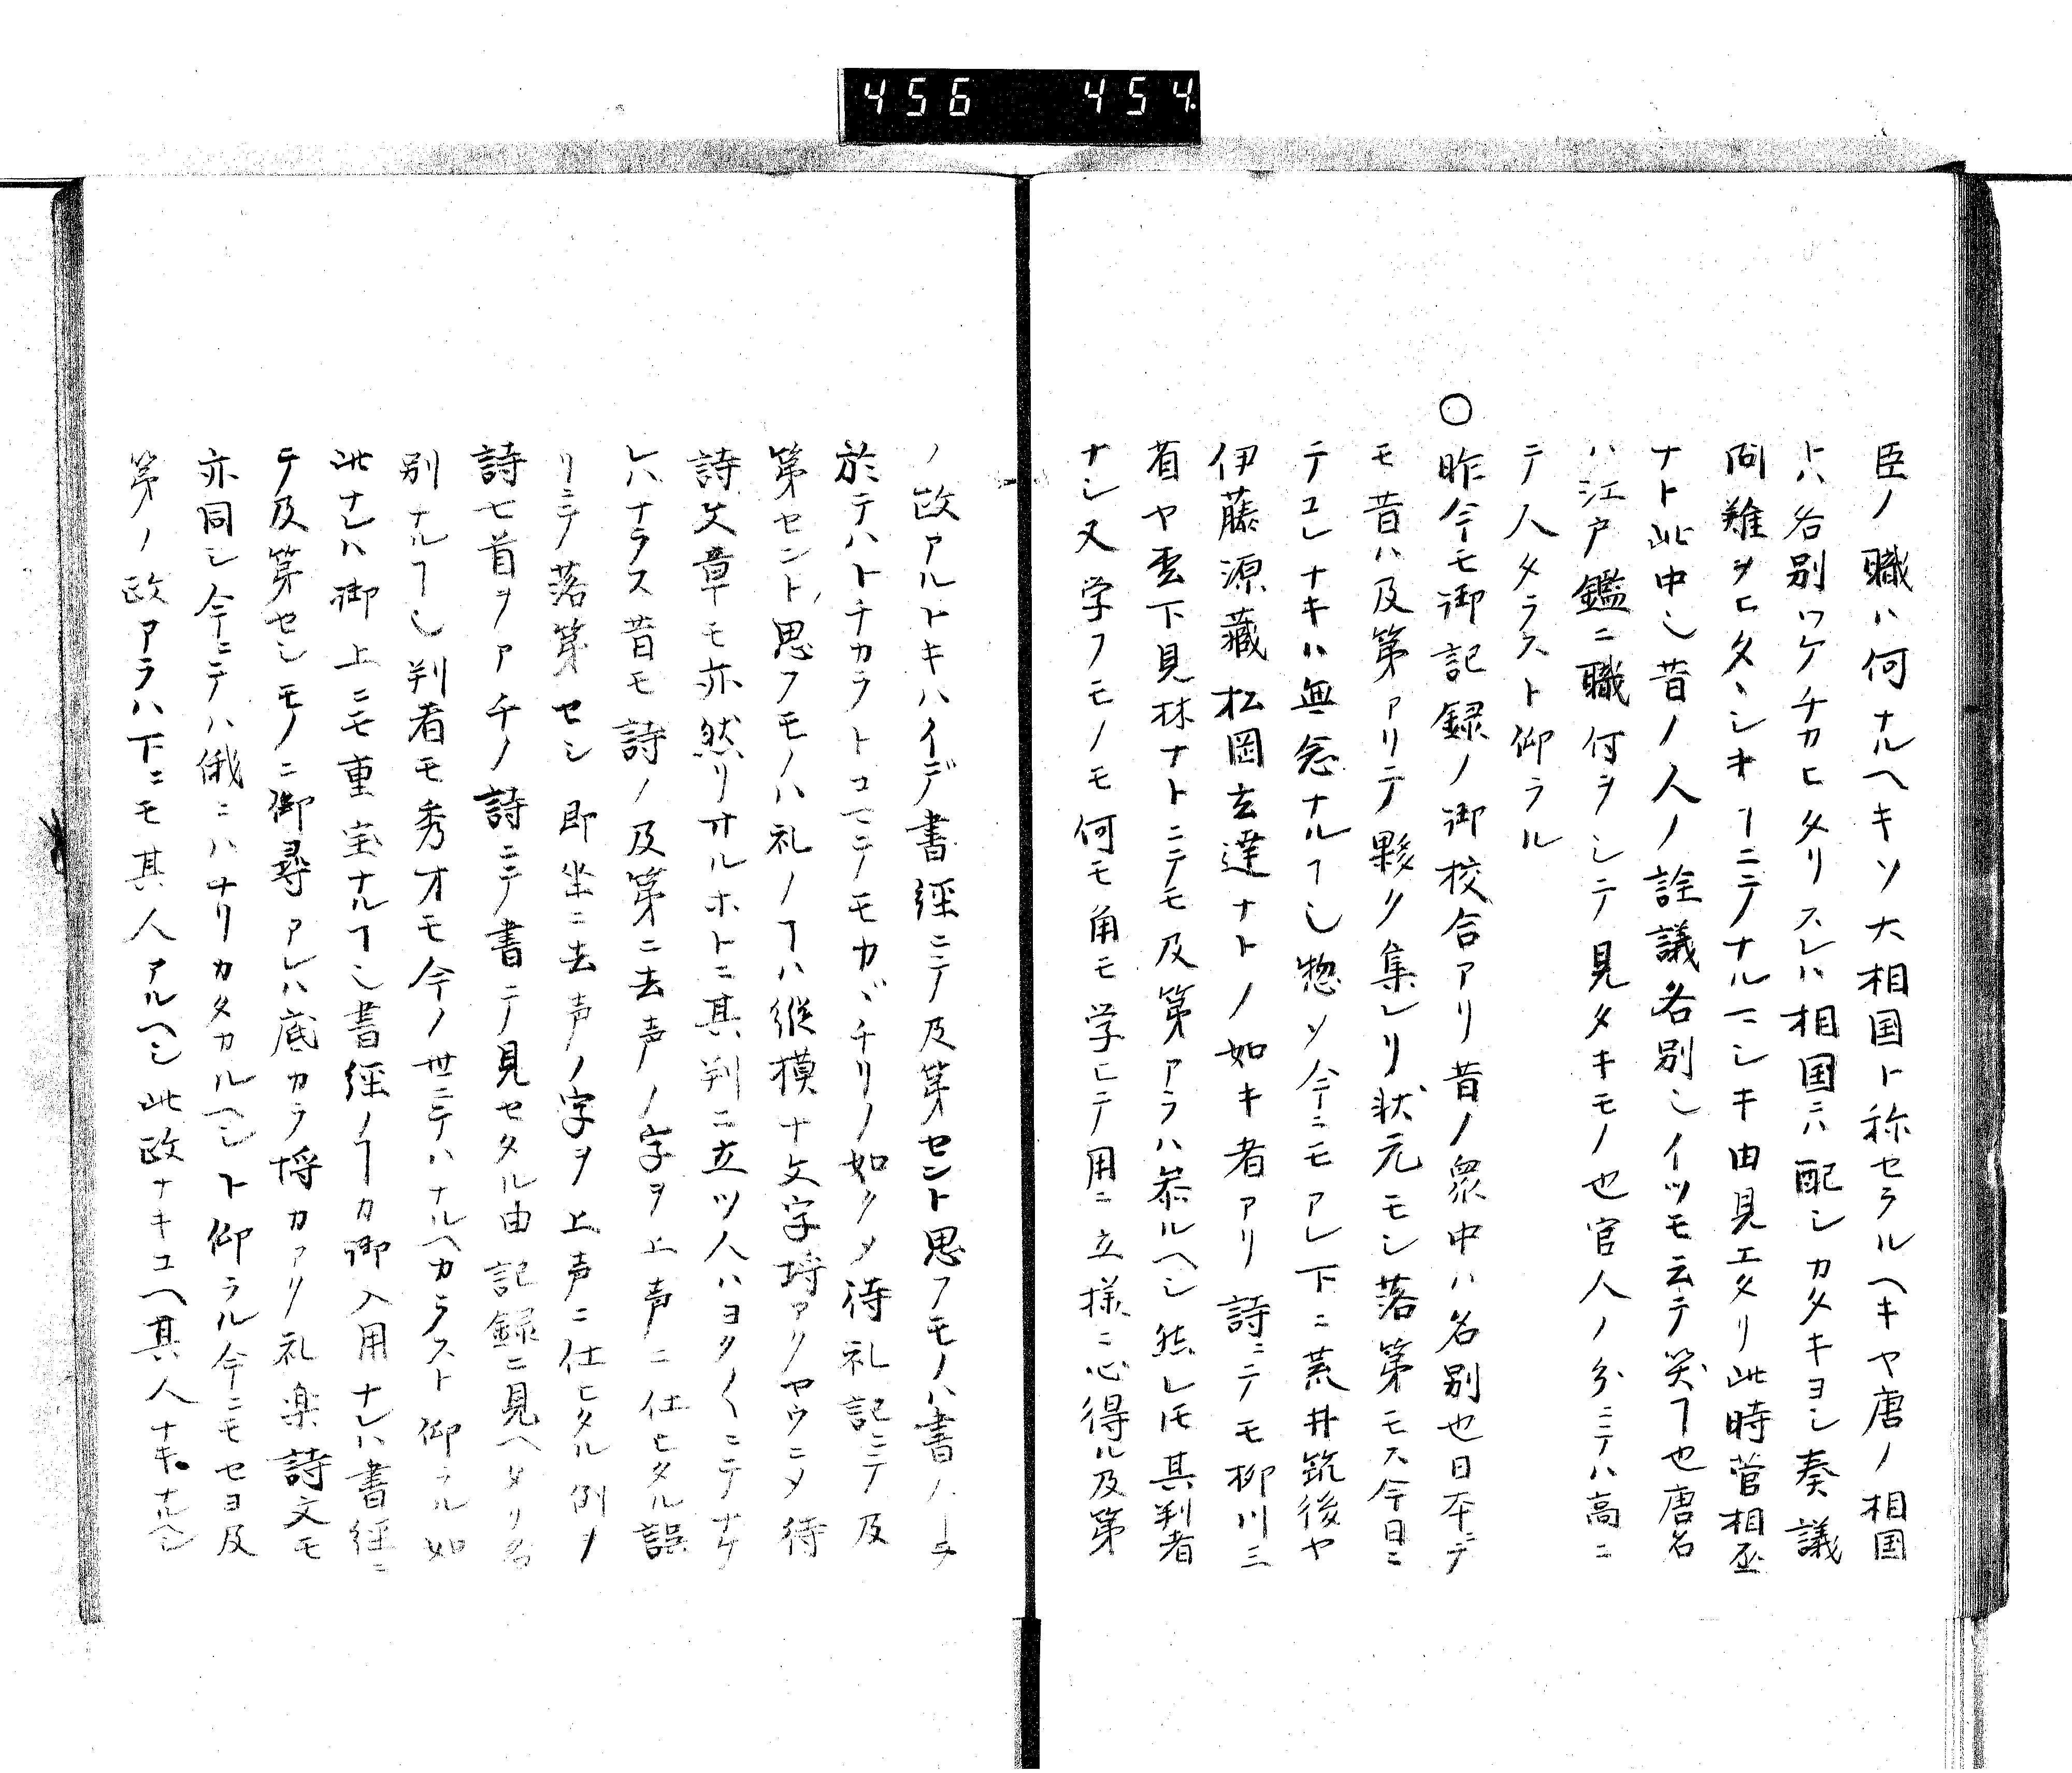 456 454
臣ノ職ハ何ナルヘキソ大相国ト称セラルヘキヤ唐ノ相国
トハ各別ワケチカヒタリスレハ相国ニハ配シカタキヨシ奏議
問難ヲヒタヽシキヿニテノナルヘシキ由見エタリ此時菅相丞
ナト此中シ昔ノ人ノ詮議各別シイツモ云テ笑フヿ也唐名
ハ江戸鑑ニ職何ヲシテ見タキモノ也官人ノ分ニテハ高ニ
テ人タラスト仰ラル
○昨今モ御記録ノ御校合アリ昔ノ衆中ハ各別也日本ニテ
モ昔ハ及第アリテ夥ク集レリ状元モシ落第モス今日ニ
テコレナキハ無念ナルヿシ惣ソ今ニモアレ下ニ荒井筑後ヤ
伊藤源藏松岡玄達ナトノ如キ者アリ詩ニテモ柳川三
省ヤ雲下見林ナトニテモ及第アラハ参ルヘシ然レ𪜈其判者
ナシ又学フモノモ何モ角モ学ヒテ用ニ立様ニ心得ル及第
ノ政アルトキハイデ書経ニテ及第セント思フモノハ書ノヿニ
於テハトチカラトコマテモカヾチリノ如クメ待礼記ニテ及
第セント思フモノハ礼ノヿハ縦横十文字埒アクヤウニメ待
詩文章モ亦然リサルホトニ其判ニ立ツ人ハヨク〱ニテナケ
レハナラス昔モ詩ノ及第ニ去声ノ字ヲ上声ニ仕ヒタル誤
リニテ落第セシ即坐ニ去声ノ字ヲ上声ニ仕ヒタル例ヲ
詩七首ヲアチノ詩ニテ書テ見セタル由記録ニ見ヘタリ各
別ナルヿシ判者モ秀才モ今ノ世ニテハナルヘカラスト仰ラル如
此ナレハ御上ニモ重宝ナルヿシ書経ノヿカ御入用ナレハ書経ニ
テ及第セシモノニ御尋アレハ底カラ埒カアク礼楽詩文モ
亦同シ今ニテハ俄ニハナリカタカルヘシト仰ラル今ニモセヨ及
第ノ政アラハ下ニモ其人アルヘシ此政ナキユヘ其人ナキナルヘシ